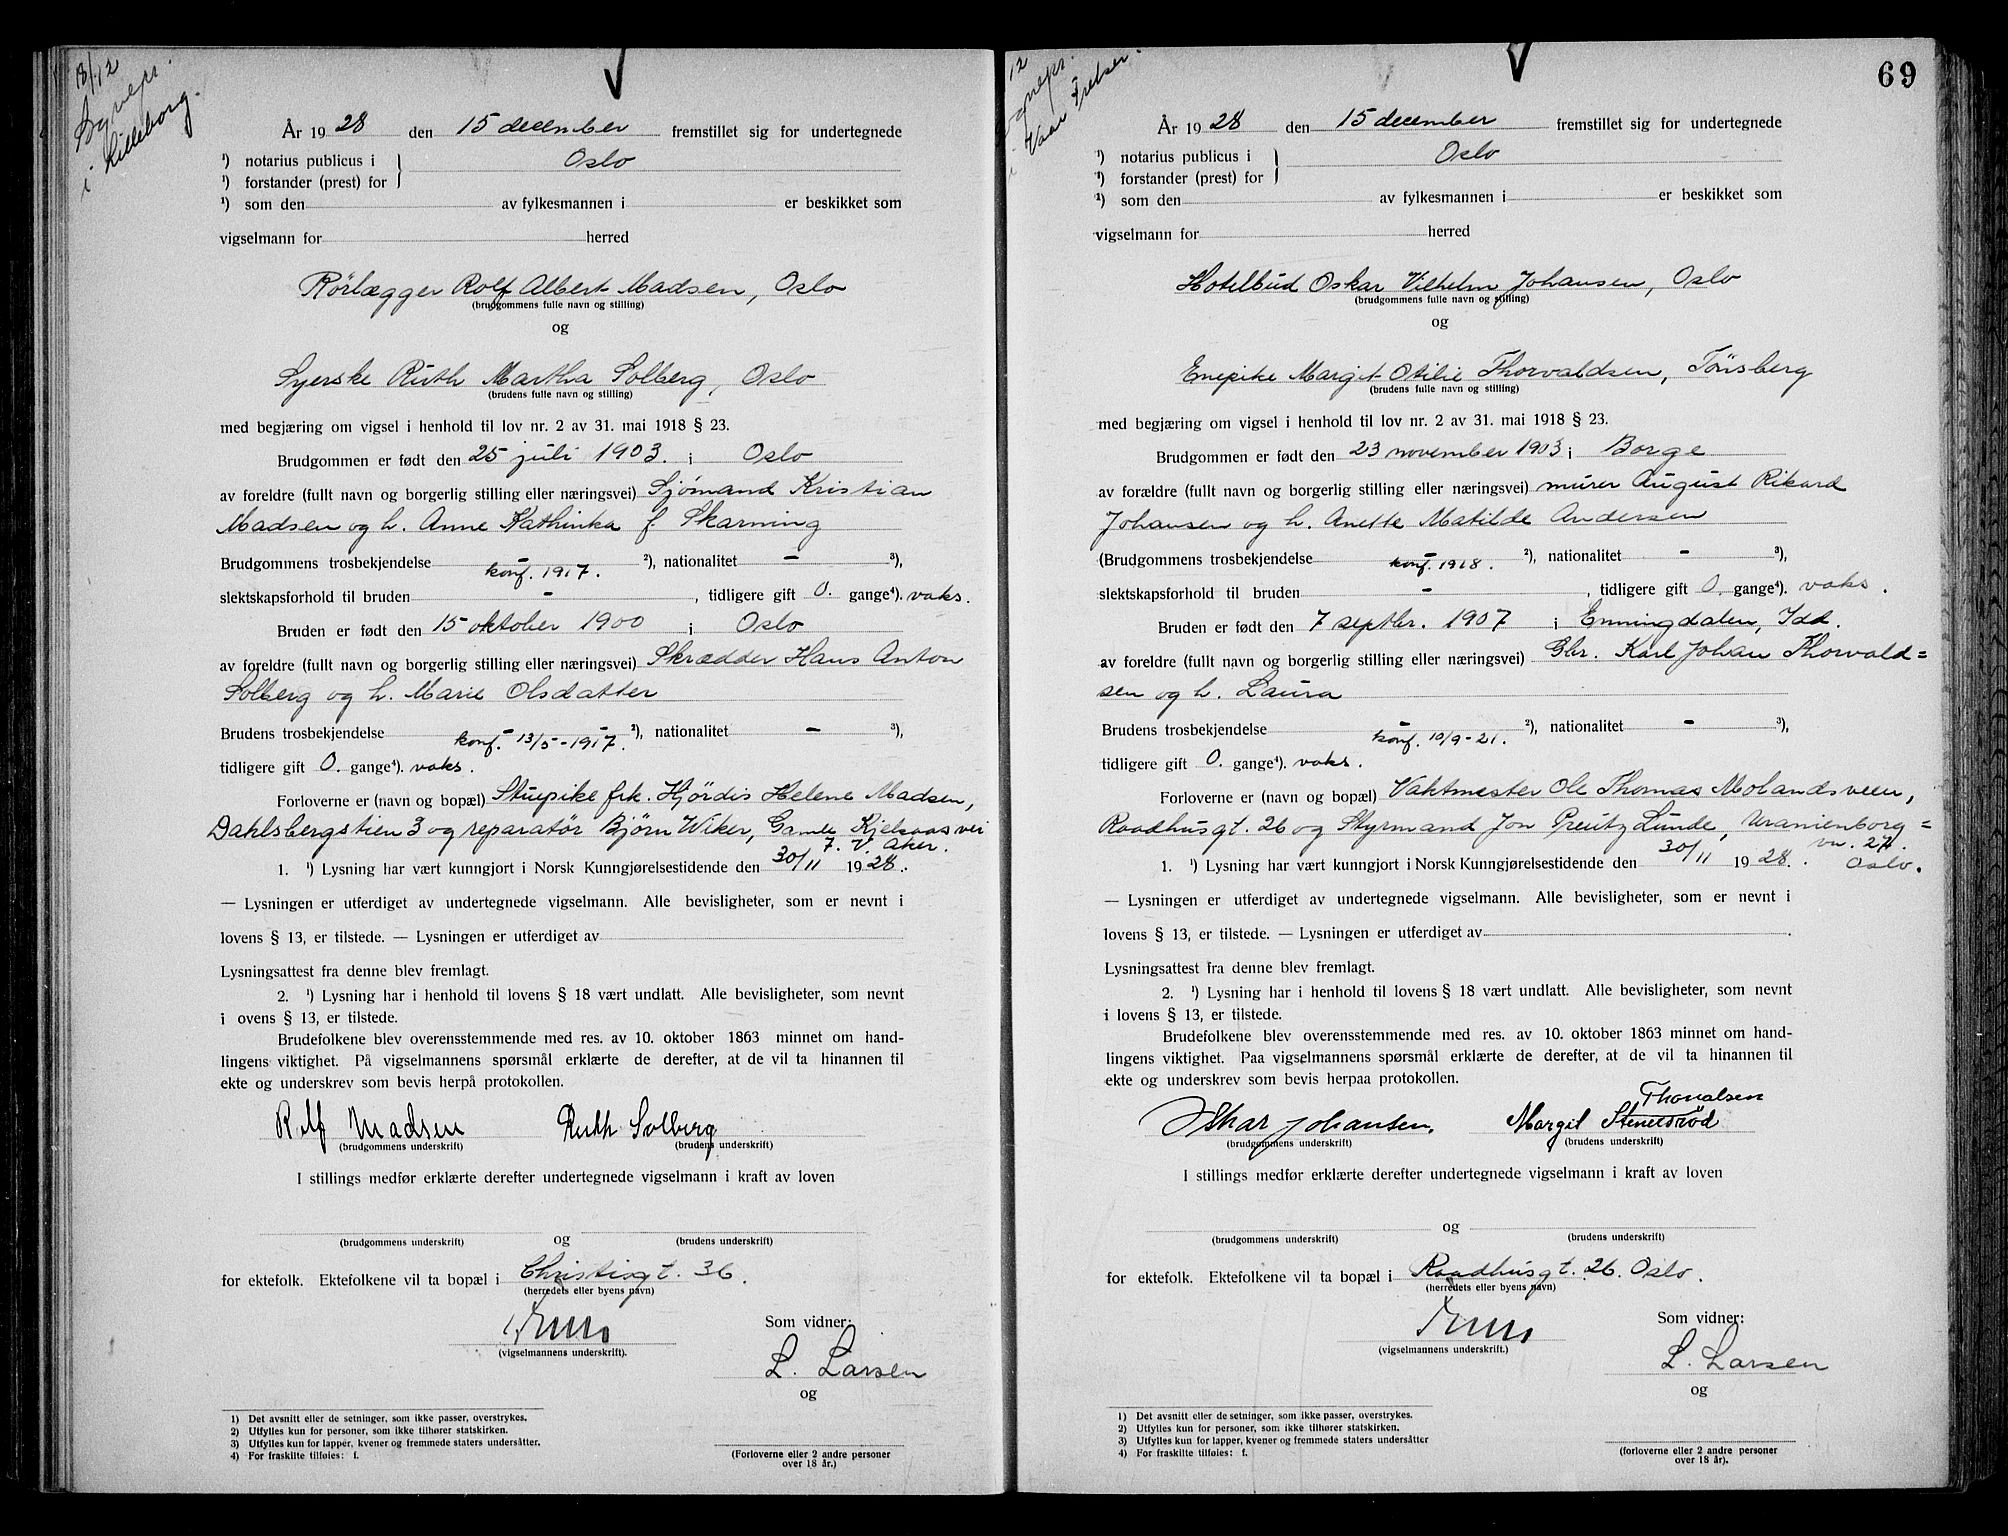 18/12
Sognepr.
i Lilleborg.
År 1928 den 15 december fremstillet sig for undertegnede
¹) notarius publicus i } Oslo
¹) forstander (prest) for
¹) som den av fylkesmannen i er beskikket som
vigselmann for herred
Rörlægger Rolf Albert Madsen, Oslo
(brudgommens fulle navn og stilling)
og
Syerske Ruth Martha Solberg, Oslo
(brudens fulle navn og stilling)
med begjæring om vigsel i henhold til lov nr. 2 av 31. mai 1918 § 23.
Brudgommen er født den 25 juli 1903. i Oslo
av foreldre (fullt navn og borgerlig stilling eller næringsvei) Sjømand Kristian
Madsen og h. Anne Kathinka f Skarning
Brudgommens trosbekjendelse – konf. 1917. ²), nationalitet – ³),
slektskapsforhold til bruden – , tidligere gift 0. gange⁴). vaks.
Bruden er født den 15 oktober 1900 i Oslo
av foreldre (fullt navn og borgerlig stilling eller næringsvei) Skrædder Hans Anton
Solberg og h. Marie Olsdatter
Brudens trosbekjendelse – konf. 13/5-1917. ²), nationalitet – ³),
tidligere gift 0. gange⁴). vaks.
Forloverne er (navn og bopæl) Stuepike frk. Hjördis Helene Madsen,
Dahlsbergstien 3 og reparatør Bjørn Wiker, Gamle Kjelsaasvei
7. V. Aker.
1. ¹) Lysning har vært kunngjort i Norsk Kunngjørelsestidende den 30/11 1928.
— Lysningen er utferdiget av undertegnede vigselmann. Alle bevisligheter, som er nevnt i
lovens § 13, er tilstede. — Lysningen er utferdiget av
Lysningsattest fra denne blev fremlagt.
2. ¹) Lysning har i henhold til lovens § 18 vært undlatt. Alle bevisligheter, som nevnt
i ovens § 13, er tilstede.
Brudefolkene blev overensstemmende med res. av 10. oktober 1863 minnet om hand-
lingens viktighet. På vigselmannens spørsmål erklærte de derefter, at de vil ta hinannen til
ekte og underskrev som bevis herpå protokollen.
Rolf Madsen Ruth Solberg
(brudgommens underskrift) (brudens underskrift)
I stillings medfør erklærte derefter undertegnede vigselmann i kraft av loven
og
(brudgommens underskrift) (brudens underskrift)
for ektefolk. Ektefolkene vil ta bopæl i Christiesgt. 36.
(herredets eller byens navn)
Som vidner:
(vigselmannens underskrift).
L. Larsen
og
1) Det avsnitt eller de setninger, som ikke passer, overstrykes.
2) Utfylles kun for personer, som ikke tilhører statskirken.
3) Utfylles kun for lapper, kvener og fremmede staters undersåtter.
4) For fraskilte tilføies: f.
(Forloverne eller 2 andre personer
over 18 år.)
69
12
ognepr.
i Vaar Frelser.
År 1928 den 15 december fremstillet sig for undertegnede
¹) notarius publicus i } Oslo
¹) forstander (prest) for
¹) som den av fylkesmannen i er beskikket som
vigselmann for herred
Hotelbud Oskar Vilhelm Johansen, Oslo
(brudgommens fulle navn og stilling)
og
Enepike Margit Otilie Thorvaldsen, Tönsberg
(brudens fulle navn og stilling)
med begjæring om vigsel i henhold til lov nr. 2 av 31. mai 1918 § 23.
Brudgommen er født den 23 november 1903 i Borge
av forældre (fullt navn og borgerlig stilling eller næringsvei) murer August Rikard
Johansen og h. Anette Matilde Andersen
(Brudgommens trosbekjendelse – konf. 1918. ²), nationalitet – ³),
slektskapsforhold til bruden – , tidligere gift 0. gange⁴). vaks.
Bruden er født den 7 septbr. 1907 i Enningdalen, Idd.
av foreldre (fullt navn og borgerlig stilling eller næringsvei) Gbr. Karl Johan Thorvald=
sen og h. Laura
Brudens trosbekjendelse – konf. 10/9-21. ²), nationalitet – ³),
tidligere gift 0. gange⁴). vaks.
Forloverne er (navn og bopæl) Vaktmester Ole Thomas Molandsveen,
Raadhusgt. 26 og Styrmand Jon Preutz Lunde, Uranienborg=
vn. 24.
1. ¹) Lysning har vært kunngjort i Norsk Kunngjørelsestidende den 30/11 1928. Oslo.
— Lysningen er utferdiget av undertegnede vigselmann. Alle bevisligheter, som er nevnt i
lovens § 13, er tilstede. — Lysningen er utferdiget av
Lysningsattest fra denne blev fremlagt.
2. ¹) Lysning har i henhold til lovens § 18 vært undlatt. Alle bevisligheter, som nevnt
i lovens § 13, er tilstede.
Brudefolkene blev overensstemmende med res. av 10. oktober 1863 minnet om hand-
lingens viktighet. Paa vigselmannens spørsmål erklærte de derefter, at de vil ta hinannen til
ekte og underskrev som bevis herpaa protokollen.
Thorvalsen
Oskar Johansen. Margit Stenersrød
(brudgommens underskrift) (brudens underskrift)
I stillings medfør erklærte derefter undertegnede vigselmann i kraft av loven
og
(brudgommens underskrift) (brudens underskrift)
for ektefolk. Ektefolkene vil ta bopæl i Raadhusgt. 26. Oslo.
(herredets eller byens navn)
Som vidner:
(vigselmannens underskrift.)
L. Larsen
og
1) Det avsnitt eller de setninger, som ikke passer, overstrykes.
2) Utfylles kun for personer, som ikke tilhører statskirken.
3) Utfylles kun for lapper, kvener og fremmede staters undersåtter
4) For fraskilte tilføies: f.
(forloverne eller 2 andre personer
over 18 år).